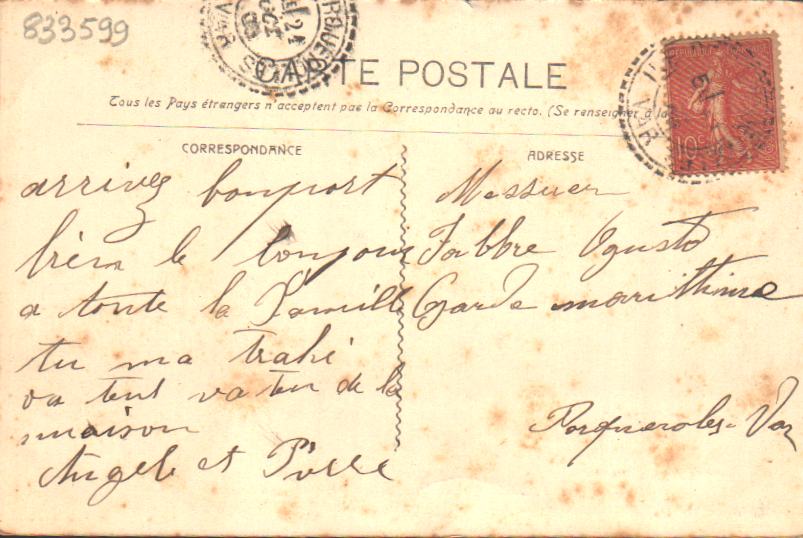 833599
CARTE POSTALE
Tous les Pays étrangers n'acceptent pas la Correspondance au recto. (Se renseigner à la
CORRESPONDANCE
arrivez bonport
bien le bonjour
a toute la famille
tu ma trahi
va tent va ten de la
maison
Angele et
ADRESSE
Messieur
Fabbre Ogusto
Garde marithime
Porqueroles-Var
10
VAR
21